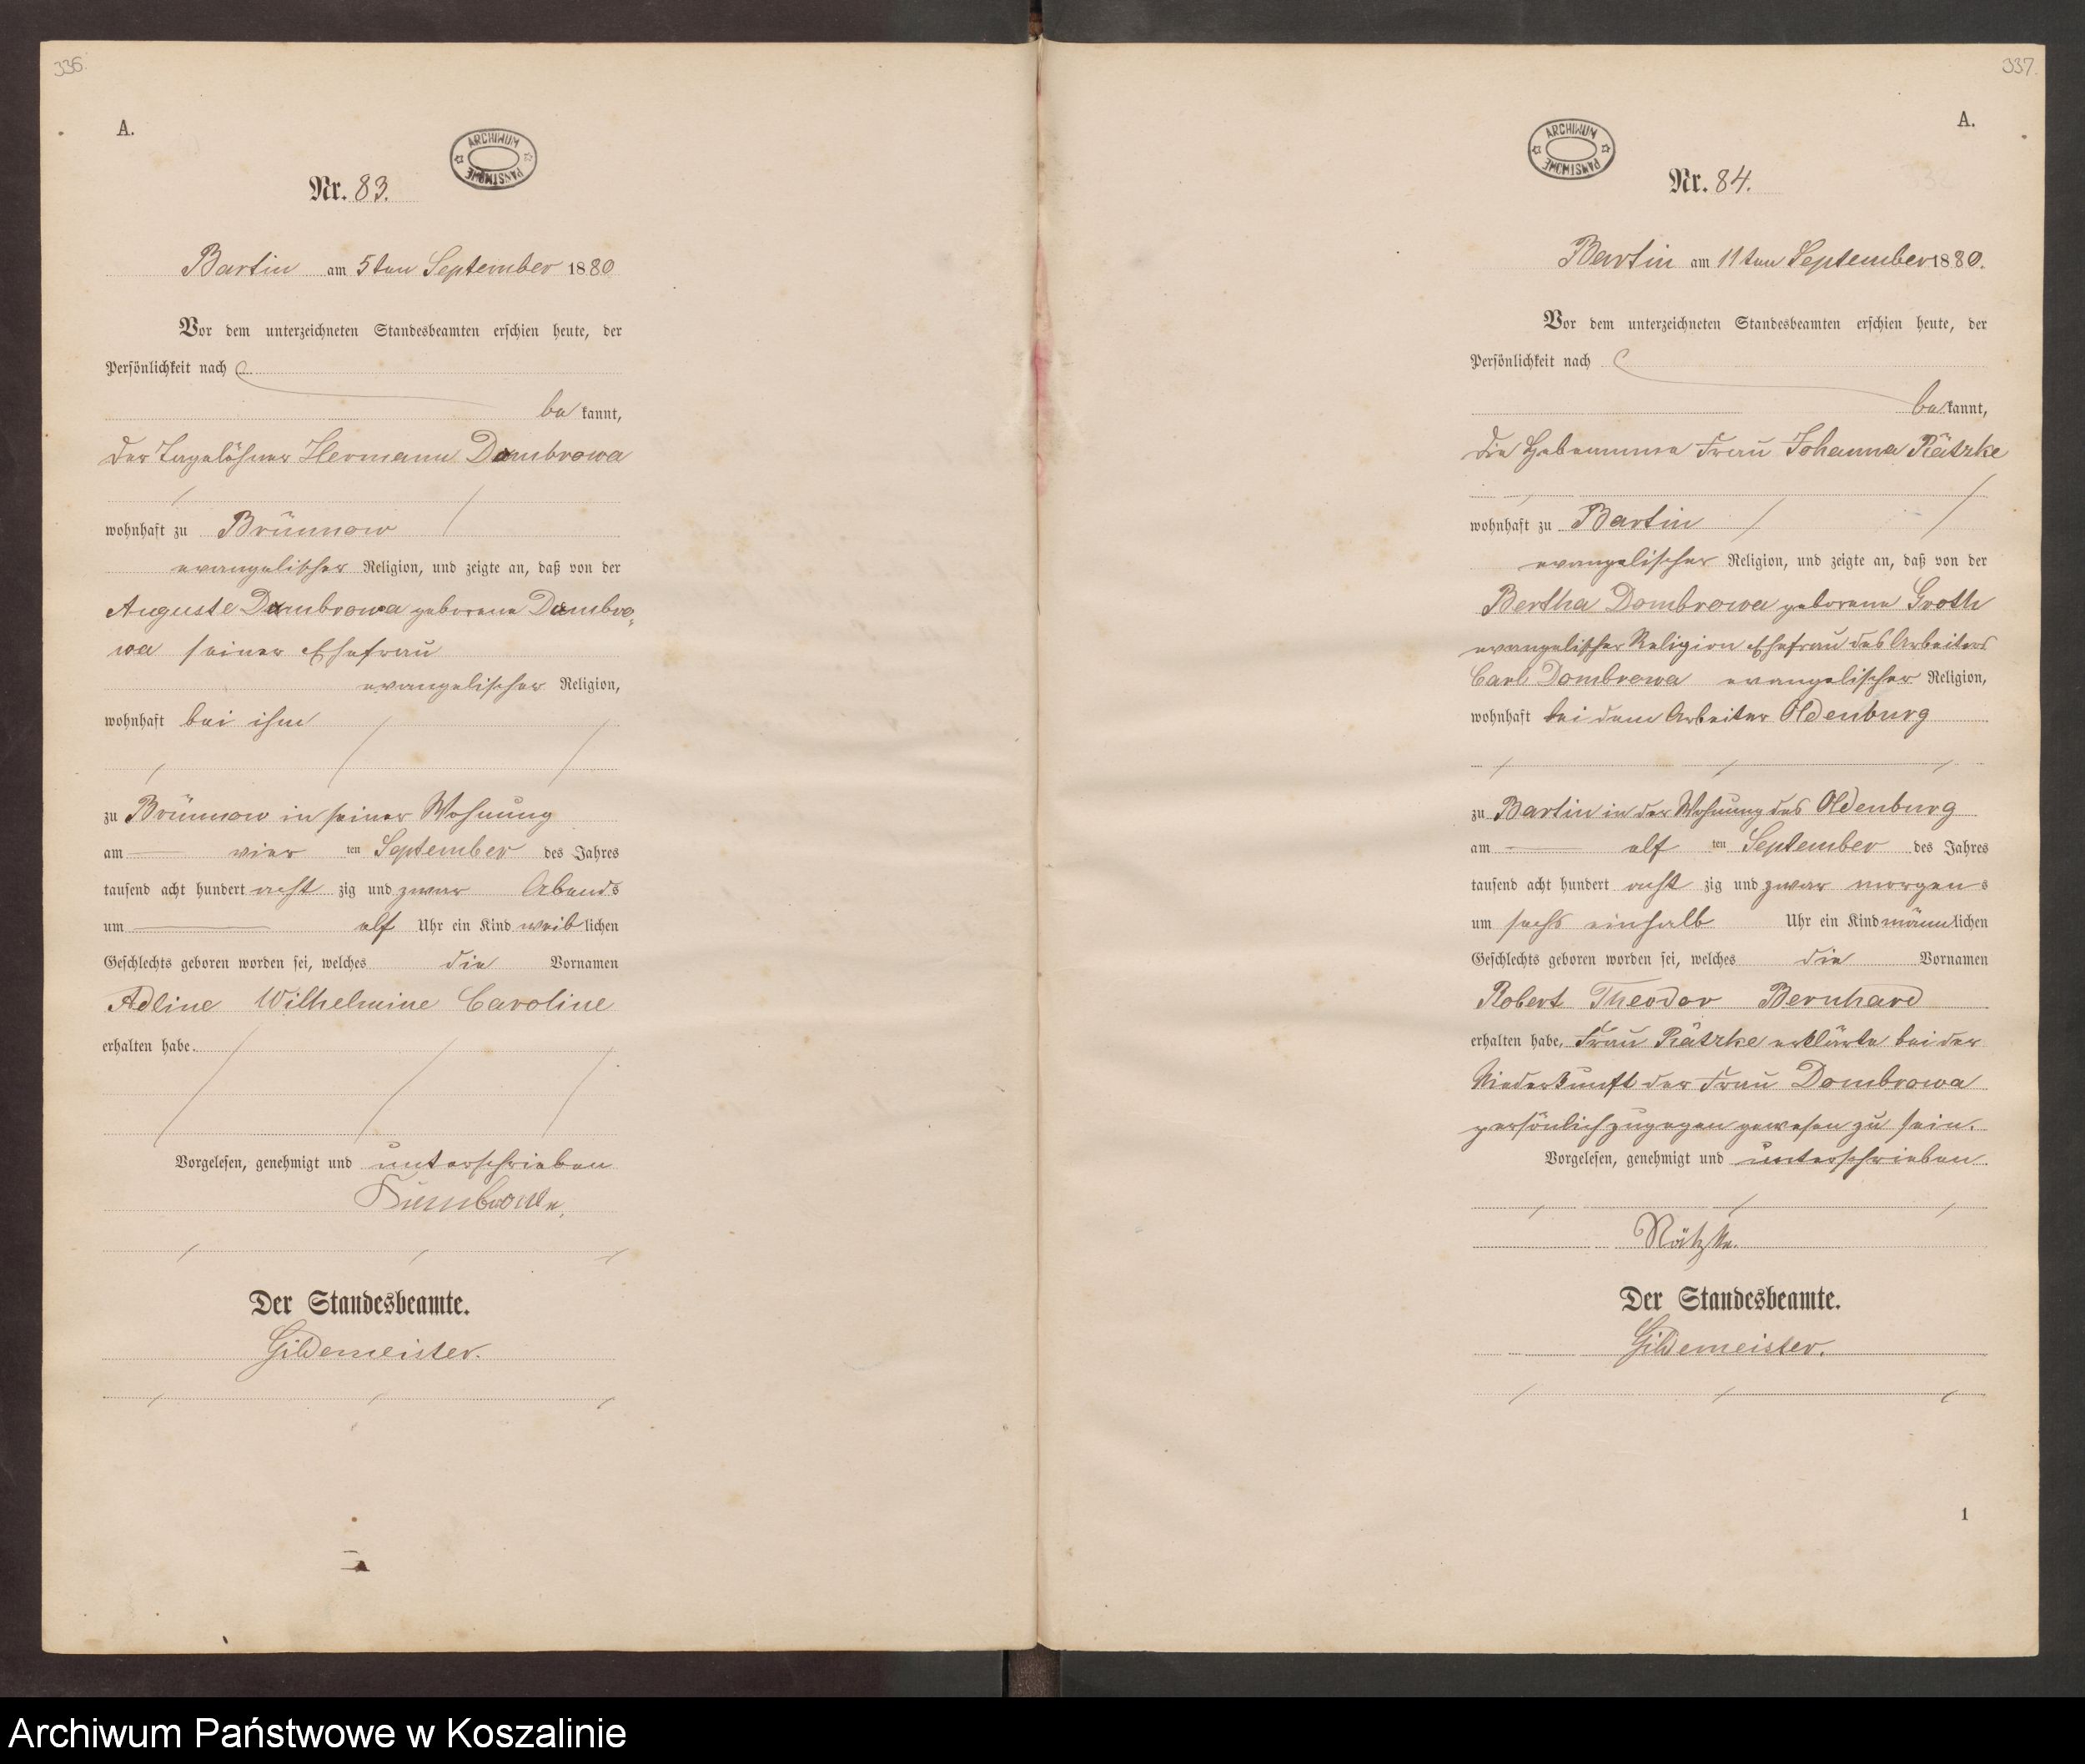 336.
A.
ARCHIWUM PAŃSTWOWE
Nr. 83.
Bartin am 5ten September 1880
Vor dem unterzeichneten Standesbeamten erschien heute, der
Persönlichkeit nach
be kannt,
der Tagelöhner Hermann Dombrowa
wohnhaft zu Brünnow
evangelischer Religion, und zeigte an, daß von der
Auguste Dombrowa geborene Dombro-
wa seiner Ehefrau
evangelischer Religion,
wohnhaft bei ihm
zu Brünnow in seiner Wohnung
am vier ten September des Jahres
tausend acht hundert acht zig und zwar Abends
um elf Uhr ein Kind weib lichen
Geschlechts geboren worden sei, welches die Vornamen
Adline Wilhelmine Caroline
erhalten habe.
Vorgelesen, genehmigt und unterschrieben
Dumbrowa.
Der Standesbeamte.
Gildemeister.
337.
A.
ARCHIWUM PAŃSTWOWE
Nr. 84.
Bartin am 11ten September 1880.
Vor dem unterzeichneten Standesbeamten erschien heute, der
Persönlichkeit nach
be kannt,
die Hebeamme Frau Johanna Rätzke
wohnhaft zu Bartin
evangelischer Religion, und zeigte an, daß von der
Bertha Dombrowa geborene Groth
evangelischer Religion Ehefrau des Arbeiters
Carl Dombrowa evangelischer Religion,
wohnhaft bei dem Arbeiter Oldenburg
zu Bartin in der Wohnung des Oldenburg
am elf ten September des Jahres
tausend acht hundert acht zig und zwar morgens
um sechs einhalb Uhr ein Kind männ lichen
Geschlechts geboren worden sei, welches die Vornamen
Robert Theodor Bernhard
erhalten habe. Frau Rätzke erklärte bei der
Niederkunft der Frau Dombrowa
persönlich zugegen gewesen zu sein.
Vorgelesen, genehmigt und unterschrieben
Rätzke.
Der Standesbeamte.
Gildemeister.
1
Archiwum Państwowe w Koszalinie